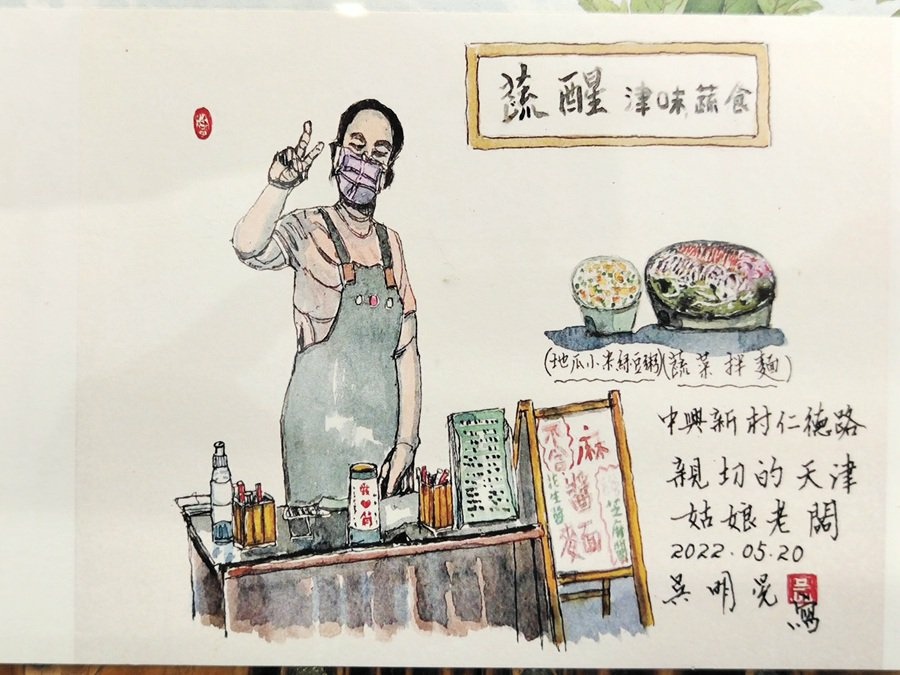 蔬醒 津味蔬食
(地瓜小米綠豆粥)(蔬菜拌麵)
中興新村仁德路
親切的天津
姑娘老闆
2022.05.20
吳明晃
寫
麻醬麵
不含花生醬
芝麻醬